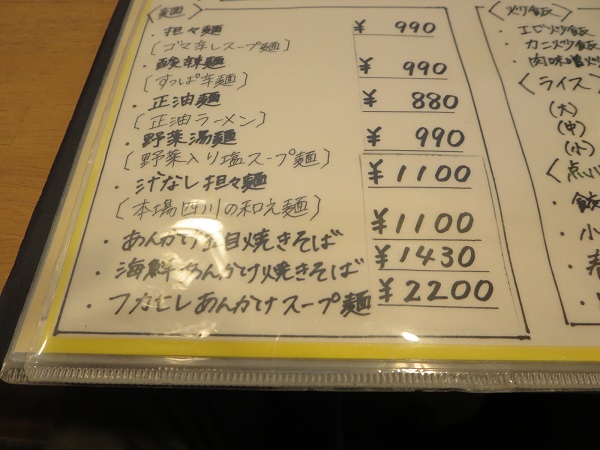 〈麺〉
・担々麺 ¥990
(ゴマ辛しスープ麺)
・酸辣麺 ¥990
(すっぱ辛麺)
・正油麺 ¥880
(正油ラーメン)
・野菜湯麺 ¥990
(野菜入り塩スープ麺)
・汁なし担々麺 ¥1100
(本場四川の和え麺)
・あんかけ五目焼きそば ¥1100
・海鮮あんかけ焼きそば ¥1430
・フカヒレあんかけスープ麺 ¥2200
〈炒飯〉
・エビ炒飯
・カニ炒飯
・肉味噌炒
〈ライス〉
(大)
(中)
(小)
〈点心
・餃
・小
・春